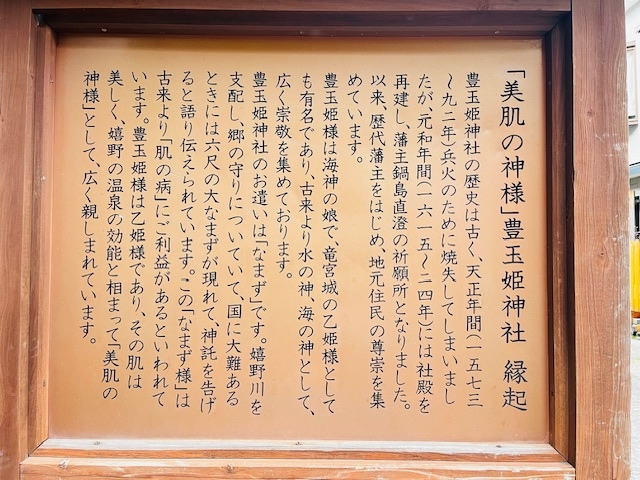 「美肌の神様」豊玉姫神社 縁起
豊玉姫神社の歴史は古く、天正年間(一五七三
～九二年)兵火のために焼失してしまいまし
たが、元和年間(一六一五～二四年)には社殿を
再建し、藩主鍋島直澄の祈願所となりました。
以来、歴代藩主をはじめ、地元住民の尊崇を集
めています。
豊玉姫様は海神の娘で、竜宮城の乙姫様として
も有名であり、古来より水の神、海の神として、
広く崇敬を集めております。
豊玉姫神社のお遣いは「なまず」です。嬉野川を
支配し、郷の守りについていて、国に大難ある
ときには六尺の大なまずが現れて、神託を告げ
ると語り伝えられています。この「なまず様」は
古来より「肌の病」にご利益があるといわれて
います。豊玉姫様は乙姫様であり、その肌は
美しく、嬉野の温泉の効能と相まって「美肌の
神様」として、広く親しまれています。